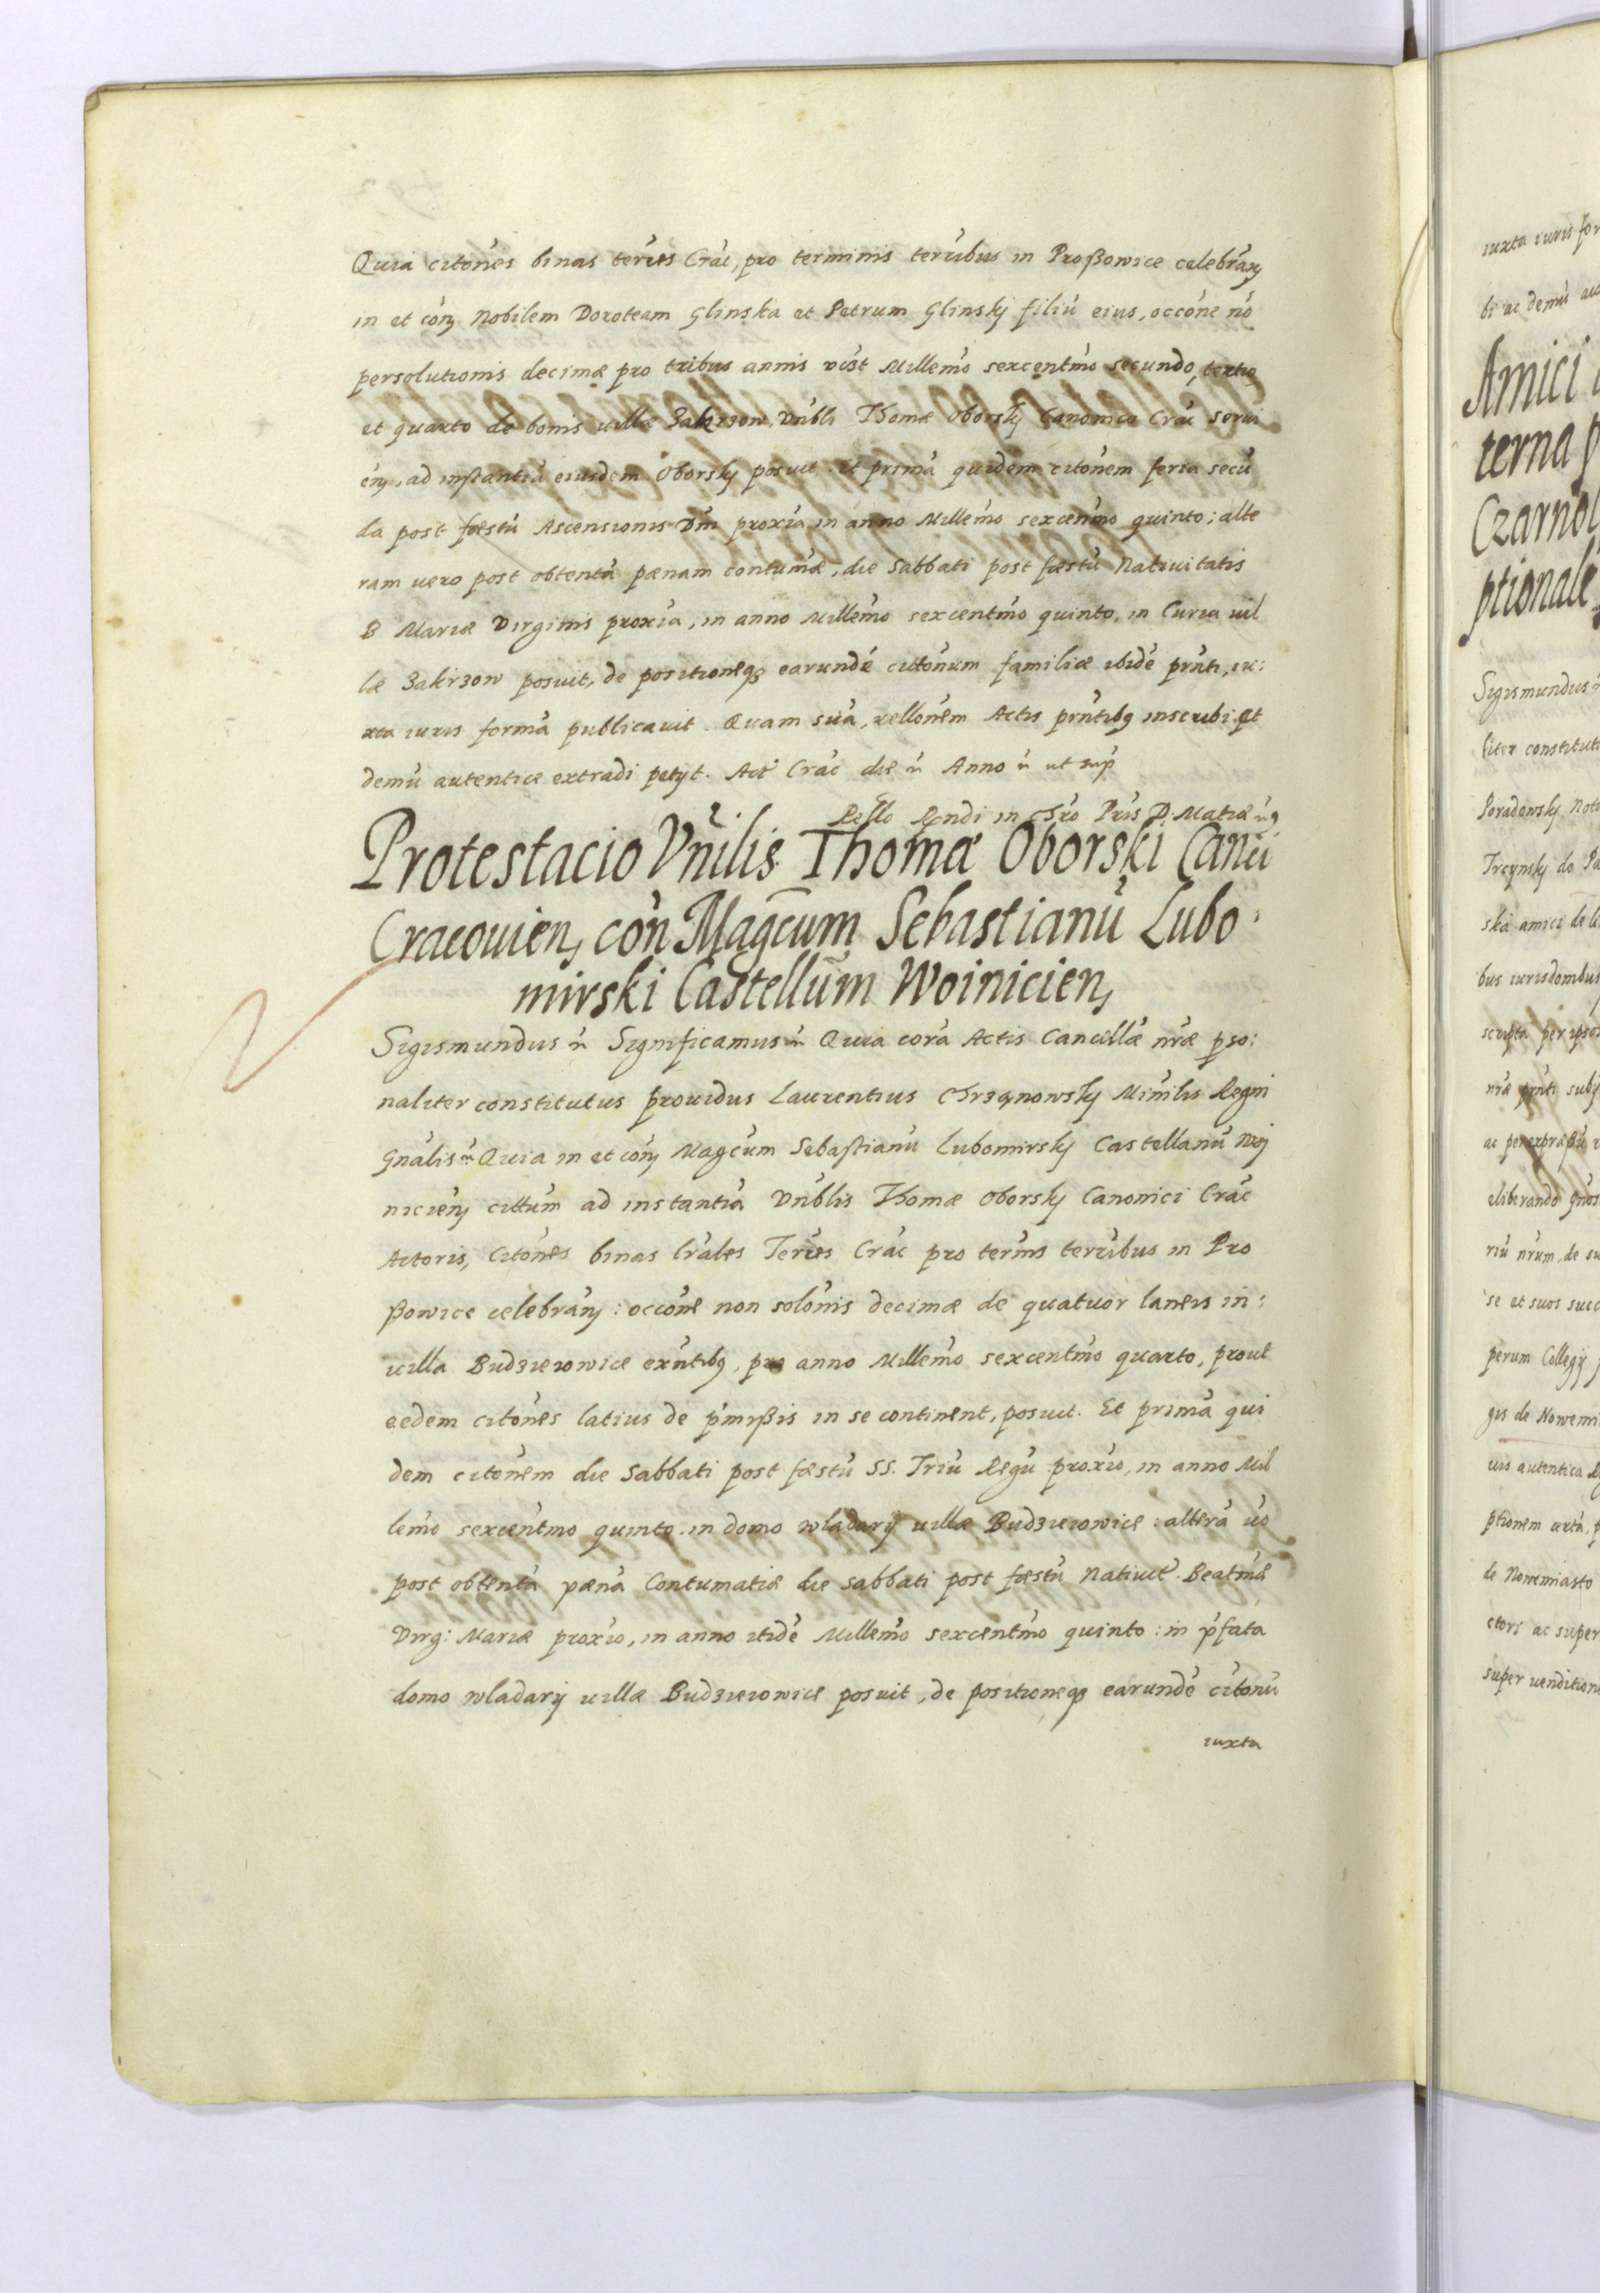 Quia citõnes binas terres Crac, pro terminis terribus in Proßowice celebran
in et con Nobilem Doroteam Glinska et Petrum Glinskj filiũ eius, occõne nõ
persolutionis decimæ pro tribus annis vist Millemo sexcentmo secundo, tertio
et quarto de bonis villæ Zakrzow, Vnbli Thomæ Oborskj Canonico Crac servi
en, ad instantiã eiusdem Oborskj posuit. et primã quidem citõnem feria secũ
da post fæstũ Ascensionis Dni proxia in anno Millemo sexcenmo quinto; alte
ram vero post obtentã pænam contumæ, die Sabbati post fæstũ Nativitatis
B Mariæ Virginis proxia, in anno Millemo sexcentmo quinto, in Curia vil
læ Zakrzow posuit, de positioneq3 earundẽ citõnum familiæ ibidẽ prnti, iu:
xta iuris formã publicavit. Quam suã, rellonem Actis prntibq inscribi et
demũ autentice extradi petyt. Act Crac die ñ Anno ñ ut sup
Protestacio Vnilis Thomæ Oborski Canci
Cracouien, con Magcum Sebastianũ Lubo:
mirski Castellum Woinicien,
Sigismundus ñ Significamus ñ Quia corã Actis Cancillæ nræ pso:
naliter constitutus providus Laurentius Chrzanowskj Minilis Regni
Gnalis ñ Quia in et con Magcum Sebastianũ Lubomirskj Castellanũ Woj
nicien cittum ad instantiã Vnblis Thomæ Oborskj Canonici Crac
Actoris, Citõnes binas lrales Terres Crac pro terms terribus in Pro
ßowice celebran: occõne non solõnis decimæ de quatuor laneis in:
villa Budzieiowice exntibq, pro anno Millemo sexcentmo quarto, prout
eedem citõnes latius de pmißis in se continent, posuit. Et primã qui
dem citõnem die Sabbati post fæstũ SS. Triũ Regũ proxio, in anno Mil
lemo sexcentmo quinto. in domo wladarij villæ Budzieiowice: alterã vo
post obtentã pænã Contumatiæ die sabbati post fæstũ Nativit. Beatmæ
Virg: Mariæ proxio, in anno itidẽ Millemo sexcentmo quinto: in pfata
domo wladarij villæ Budzieiowice posuit, de positioneq3 earundẽ citõnũ
iuxta
iuxta iuris for
bi ac demũ au
Amici
terna p
Czarnol
ptionale
Sigismundus ñ
liter constituti
Poradowskj Not
Trcynskj do Pa
ska amici de li
bus iurisdombus
scripta per ipso
nræ prnti subj
eliberando gnos
riũ nrum, de su
se et suos succ
perum Collegij
gis de Nowemi
vis autentica
ptionem iuxta, p
de Nowemiasto
ctori ac super
super venditione